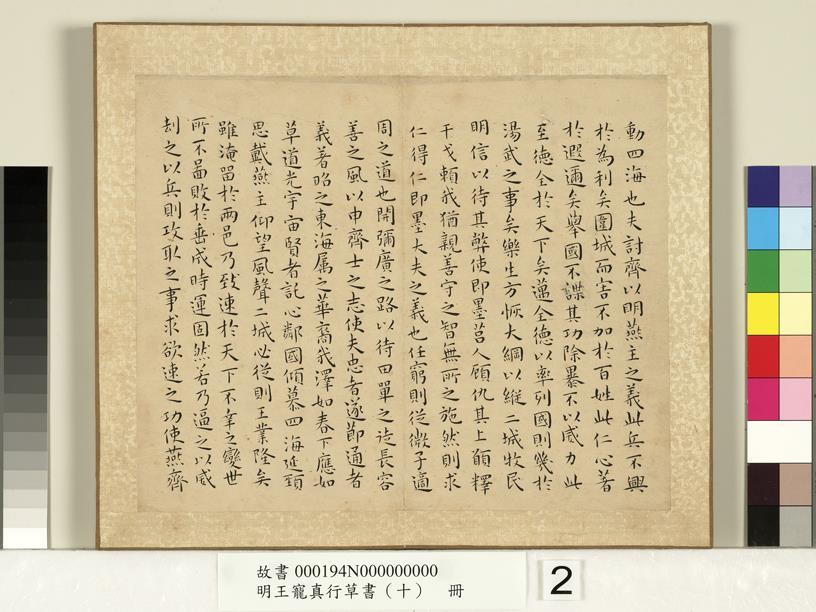 動四海也夫討齊以明燕主之義此兵不興
於為利矣圍城而害不加於百姓此仁心著
於遐邇矣舉國不謀其功除暴不以威力此
至德全於天下矣邁全德以率列國則幾於
湯武之事矣樂生方恢大綱以縱二城牧民
明信以待其弊使即墨莒人顧仇其上願釋
干戈賴我猶親善守之智無所之施然則求
仁得仁即墨大夫之義也任窮則從微子適
周之道也開彌廣之路以待田單之徒長容
善之風以申齊士之志使夫忠者遂節通者
義著昭之東海屬之華裔我澤如春下應如
草道光宇宙賢者託心鄰國傾慕四海延頸
思戴燕主仰望風聲二城必從則王業隆矣
雖淹留於兩邑乃致速於天下不幸之變世
所不啚敗於垂成時運固然若乃逼之以威
刦之以兵則攻取之事求欲速之功使燕齊
故書000194N000000000
明王寵真行草書（十） 冊
2